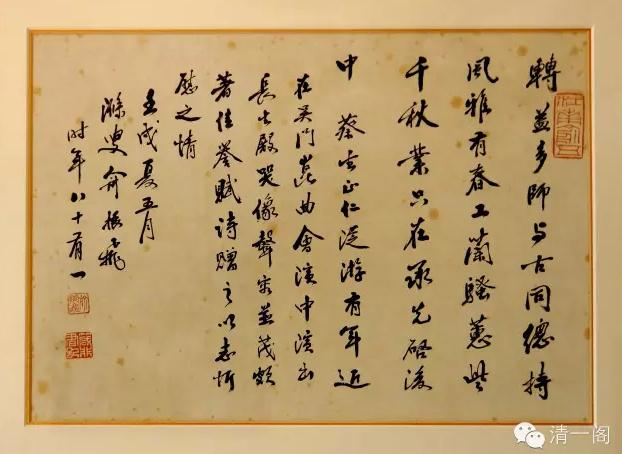 轉益多師与古同總持
風雅有春工蘭騷蕙些
千秋業只在承先啓後
中 蔡士正仁從游有年近
在吴門崑曲會演中演出
長生殿哭像聲容並茂頗
著佳譽賦詩贈之以志忻
慰之情
壬戌夏五月
滌叟俞振飛
时年八十有一
清一阁